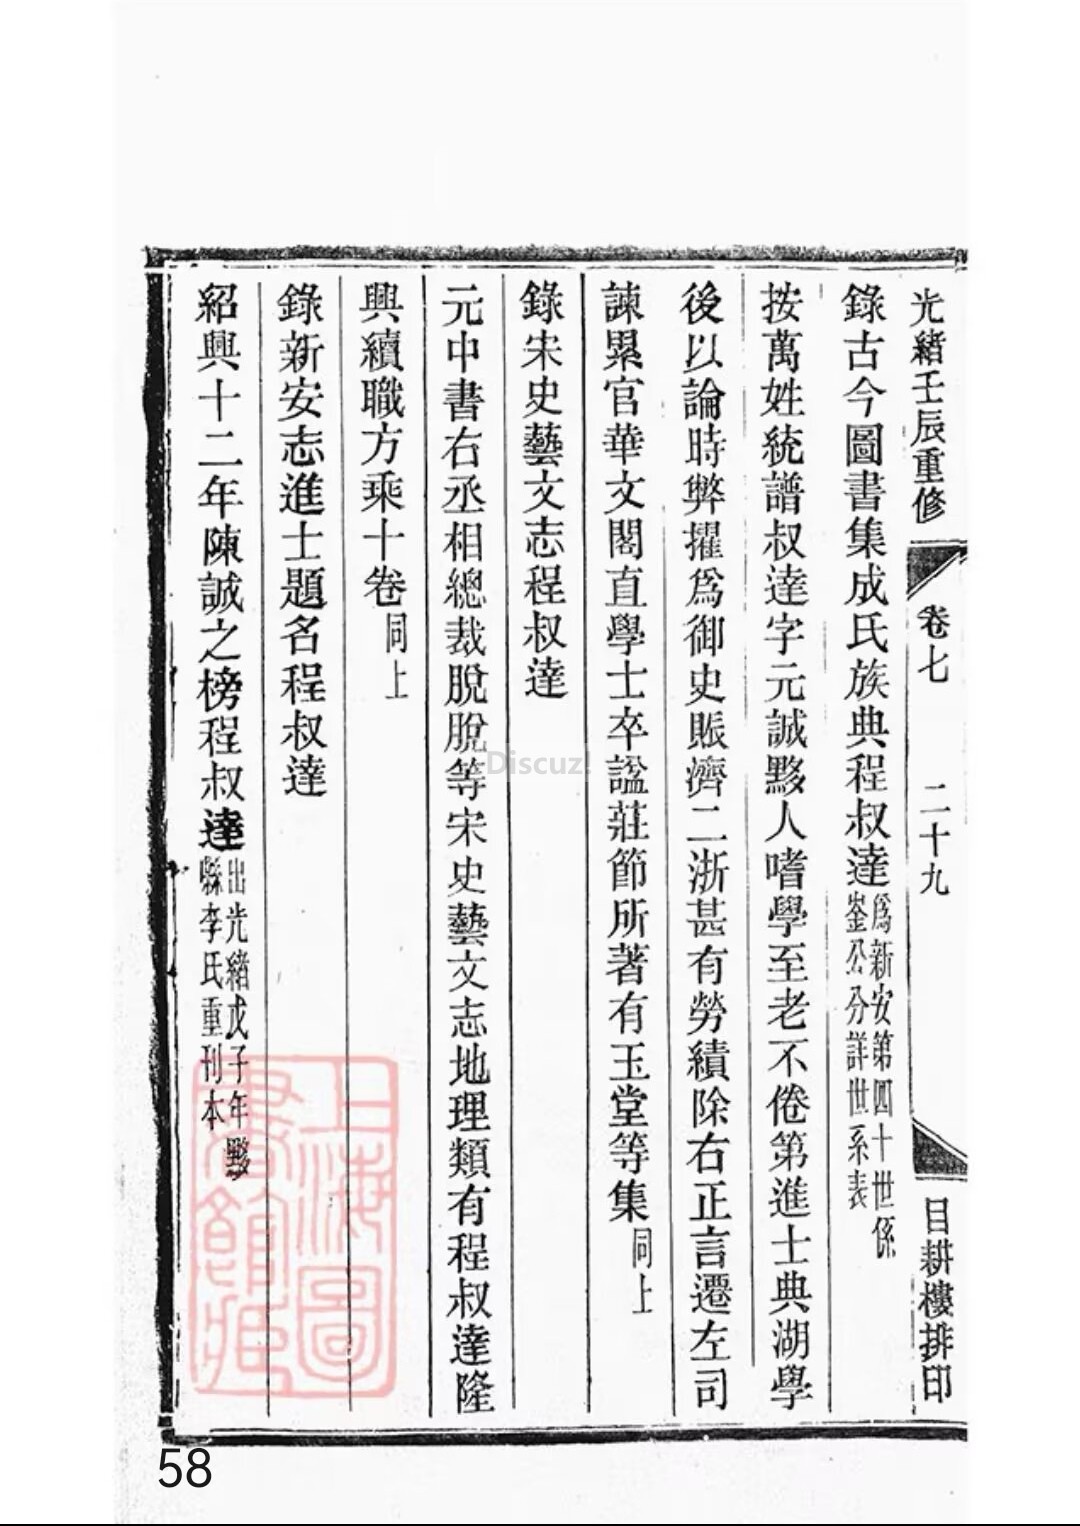 光緒壬辰重修 卷七 二十九 目耕樓排印
錄古今圖書集成氏族典程叔達為新安第四十世係
崟公分詳世系表
按萬姓統譜叔達字元誠黟人嗜學至老不倦第進士典湖學
後以論時弊擢為御史賑濟二浙甚有勞績除右正言遷左司
諫累官華文閣直學士卒諡莊節所著有玉堂等集同上
錄宋史藝文志程叔達
元中書右丞相總裁脫脫等宋史藝文志地理類有程叔達隆
興續職方乘十卷同上
錄新安志進士題名程叔達
紹興十二年陳誠之榜程叔達出光緒戊子年黟
縣李氏重刊本
上海圖
書館藏
Discuz!
58